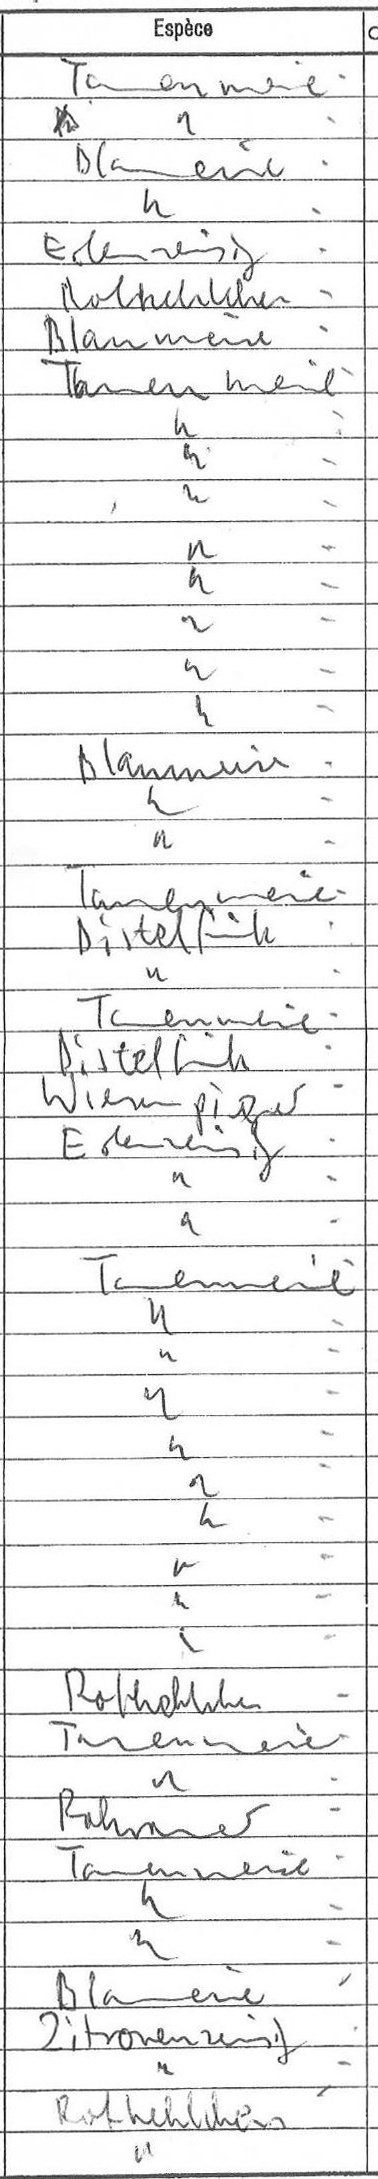 Espèce
Tanenmeise
"
Blameise
"
Erlenzeisig
Rotkehlchen
Blaumeise
Tannenmeise
"
"
"
"
"
"
"
"
Blaumeise
"
"
Tannenmeise
Distelfink
"
Tanenmeise
Distelfink
Wiesenpieper
Erlenzeisig
"
"
Tanenmeise
"
"
"
"
"
"
"
"
"
Rotkehlchen
Tanenmeise
"
Rohramer
Tanenmeise
"
"
Blameise
Zitronenzeisig
"
Rotkehlchen
"